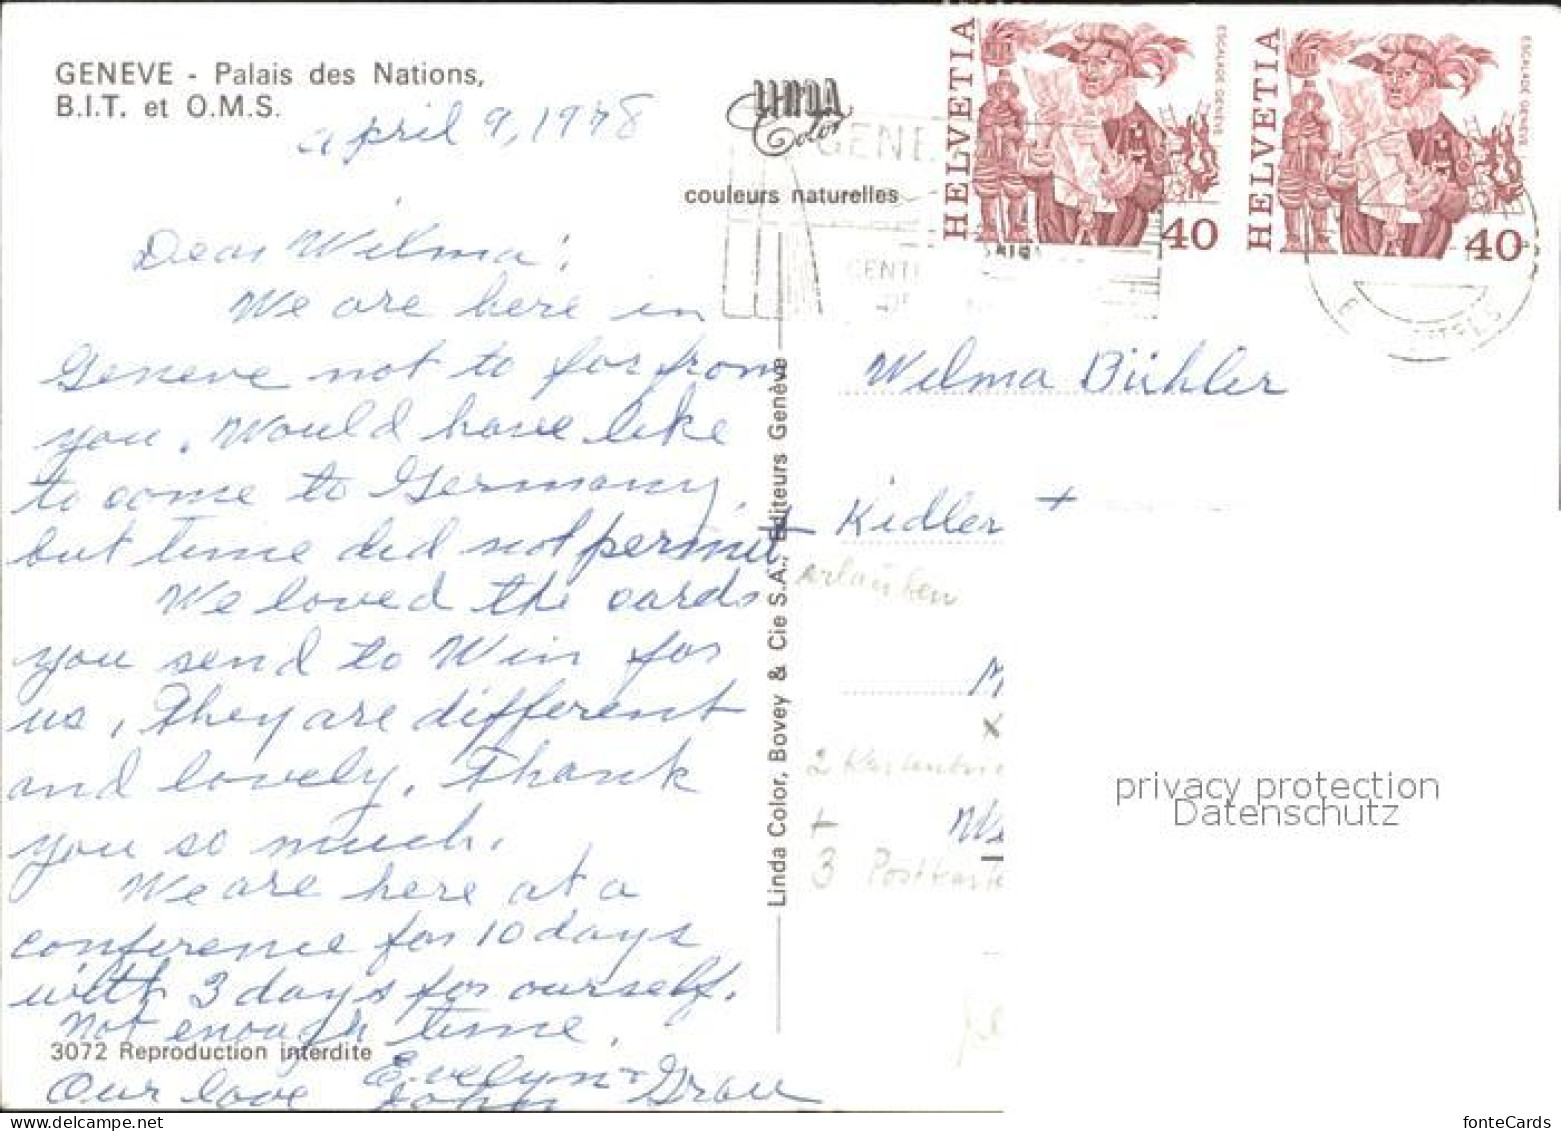 GENEVE - Palais des Nations,
B.I.T. et O.M.S.
April 9, 1978
Dear Wilma!
We are here in
Geneve not to far from
you. Would have like
to come to Germany,
but time did not permit
We loved the cards
you send to Win for
us, They are different
and lovely. Thank
you so much.
We are here at a
conference for 10 days
with 3 days for ourself.
Not enough time.
3072 Reproduction interdite
Our love Evelyn +
John Grau
LINDA
Color
couleurs naturelles
Linda Color, Bovey & Cie S.A., Editeurs Genève
HELVETIA
ESCALADE GENEVE
40
HELVETIA
ESCALADE GENEVE
40
GENE
Wilma Bühler
+ Kidler +
erlauben
x
2
+
3 Postkarte
privacy protection
Datenschutz
fonteCards